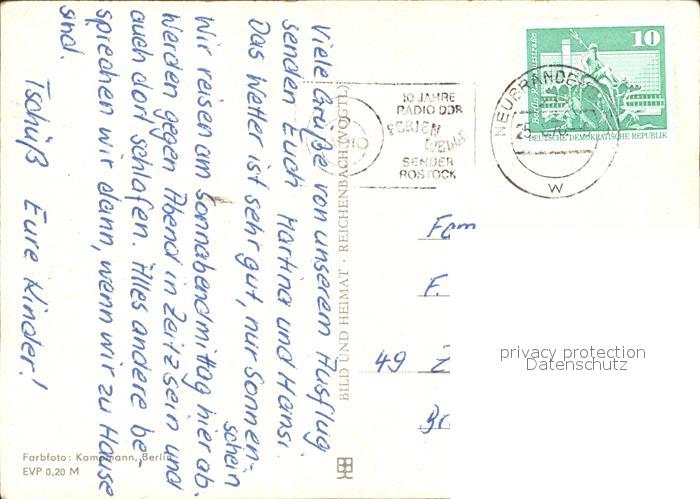 Viele Grüße von unserem Ausflug
senden Euch Martina und Hansi.
Das Wetter ist sehr gut, nur Sonnen-
schein
Wir reisen am Sonnabendmittag hier ab.
Werden gegen Abend in Zeitz sein und
auch dort schlafen. Alles andere be-
sprechen wir dann, wenn wir zu Hause
sind.
Tschüß Eure Kinder!
Farbfoto: Kampmann, Berlin
EVP 0,20 M
BILD UND HEIMAT · REICHENBACH (VOGTL)
10 JAHRE
RADIO DDR
FERIEN
WELLE
SENDER
ROSTOCK
NEUBRANDE
25
W
10
DEUTSCHE DEMOKRATISCHE REPUBLIK
Fam
F.
49 Z
Br
privacy protection
Datenschutz